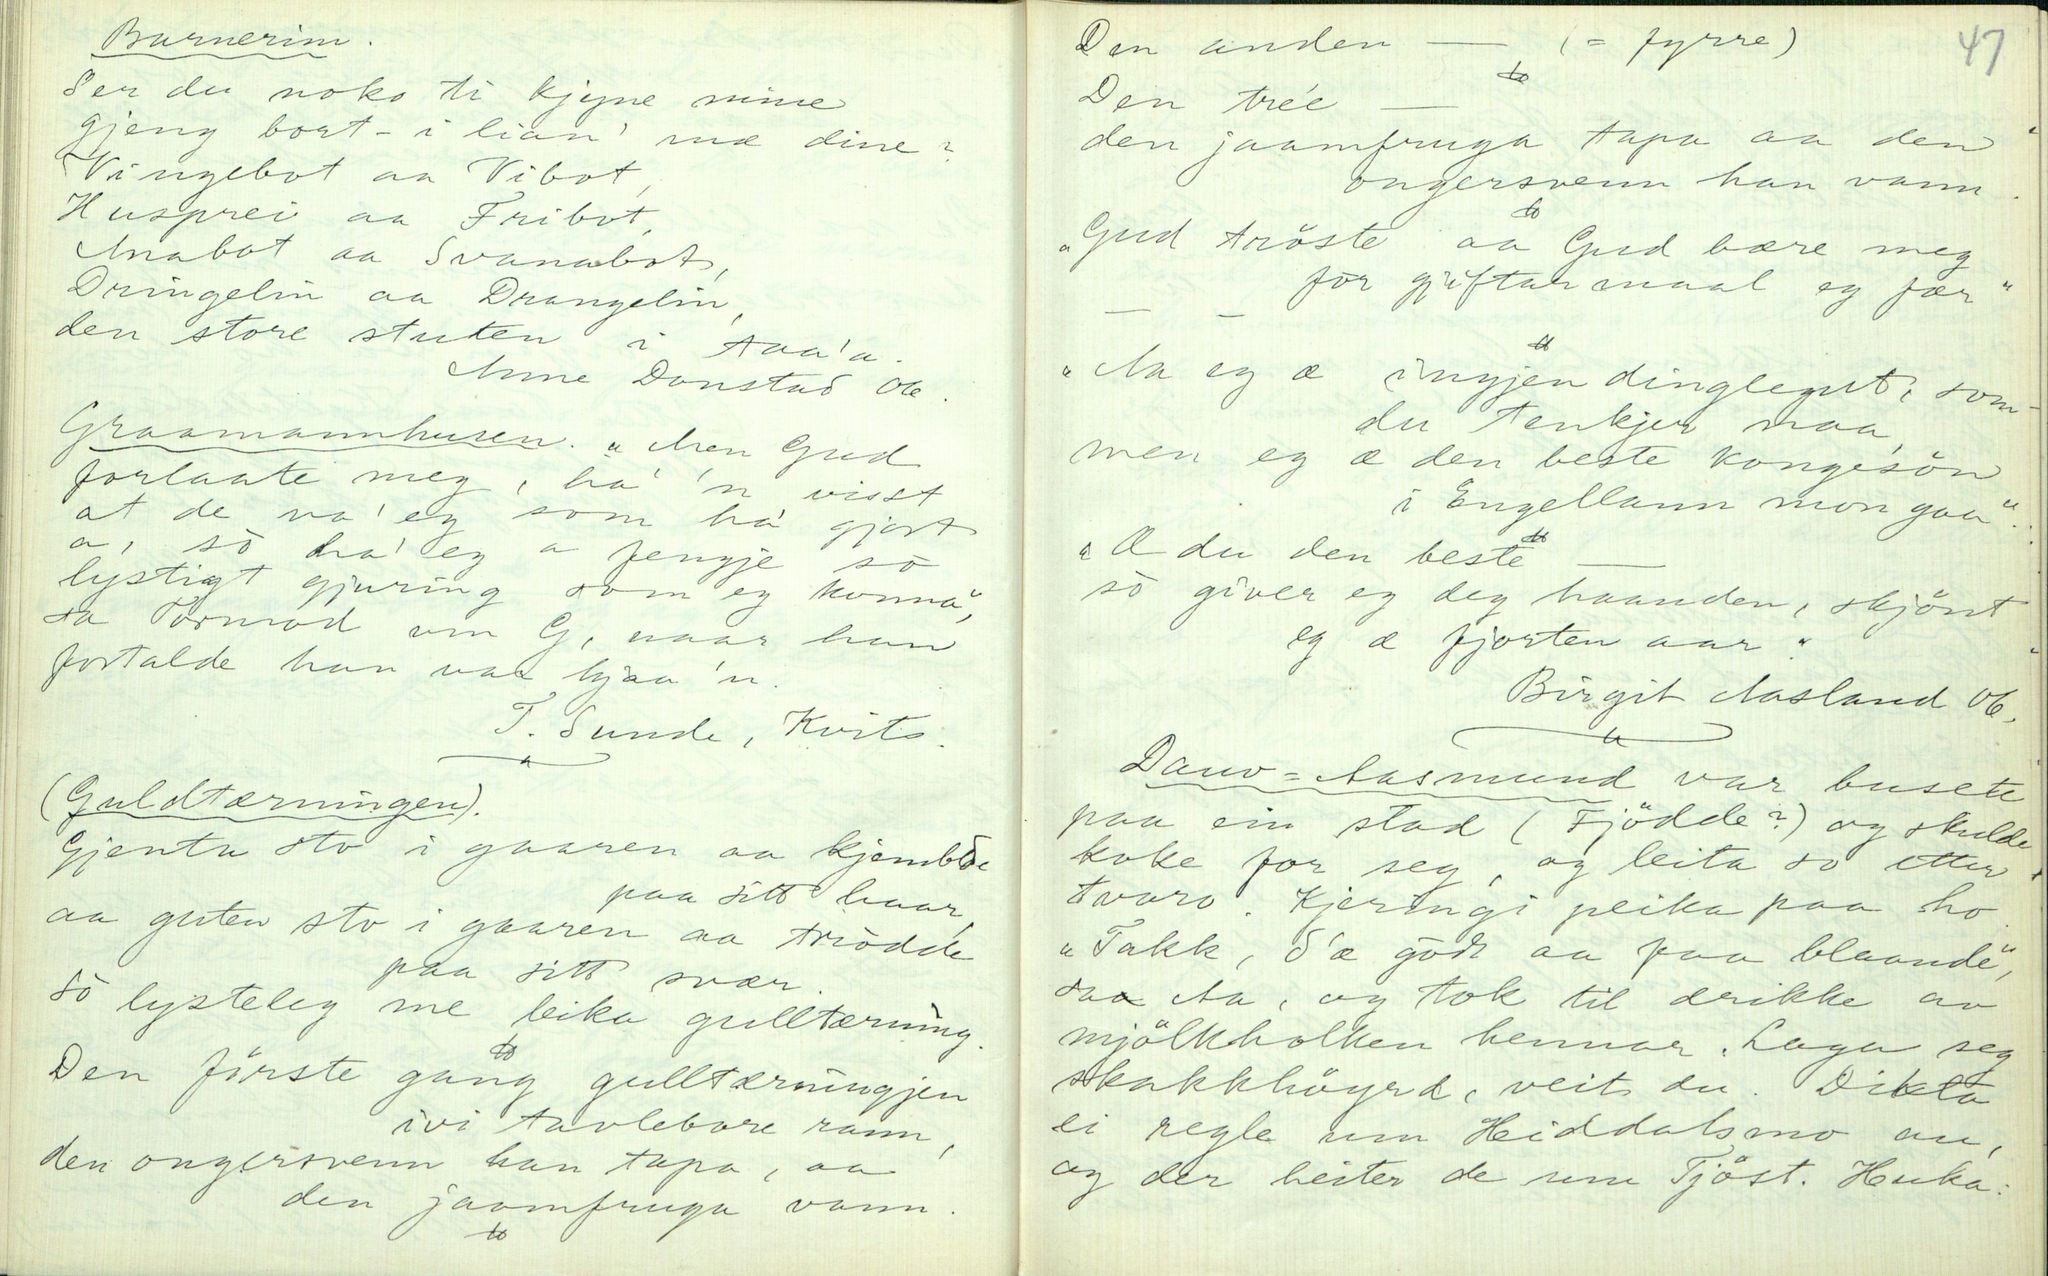 Barnerim.
Ser du noko ti kjyne mine
gjeng bort i lian' mæ dine?
Vingebot aa Vibot,
Husprei aa Fribot,
Anabot aa Svanabot,
Dringelin aa Drangelin,
den store stuten i taa'a.
Anne Donstad 06.
Graamannhusen. "Men Gud
forlaate meg, ha' 'n visst
at de va' eg som ha' gjort
a, sò ha' eg a fengje sò
lystigt gjuring som eg konna",
sa Tormod um G, naar han
fortalde han var hjaa'n.
T. Sunde, Kvits.
(Guldtærningen).
Gjenta sto i gaaren aa kjembde
paa sitt haar,
aa guten sto i gaaren aa trödde
paa sitt svær.
Sò lysteleg me leika gulltærning.
Den förste gang gulltærningjen
ivi tavlebore rann,
den ongersvenn han tapa, aa
den jaamfruga vann.
Den anden — (= fyrre)
47
Den trée —
den jaamfruga tapa aa den
ongersvenn han vann.
"Gud tröste aa Gud bære meg
for gjiftarmaal eg fær"
— —
"Aa eg æ ingjen dinglegut, som
du tenkjer maa,
men eg æ den beste kongesön
i Engellann mon gaa".
"Æ du den beste —
sò giver eg deg haanden, skjönt
eg æ fjorten aar."
Birgit Aasland 06.
Dauv-Aasmund var busete
paa ein stad (Fjödde?) og skulde
koke for seg, og leita so etter
tvoro. Kjeringi peika paa ho.
"Takk, d'æ godt aa faa blaande",
saa Aa, og tok til drikke av
mjölkholken hennar. Laga seg
skakkhöyrd, veit du. Dikta
ei regle um Heiddalsmo au,
og der heiter de um Tjöst. Huka: